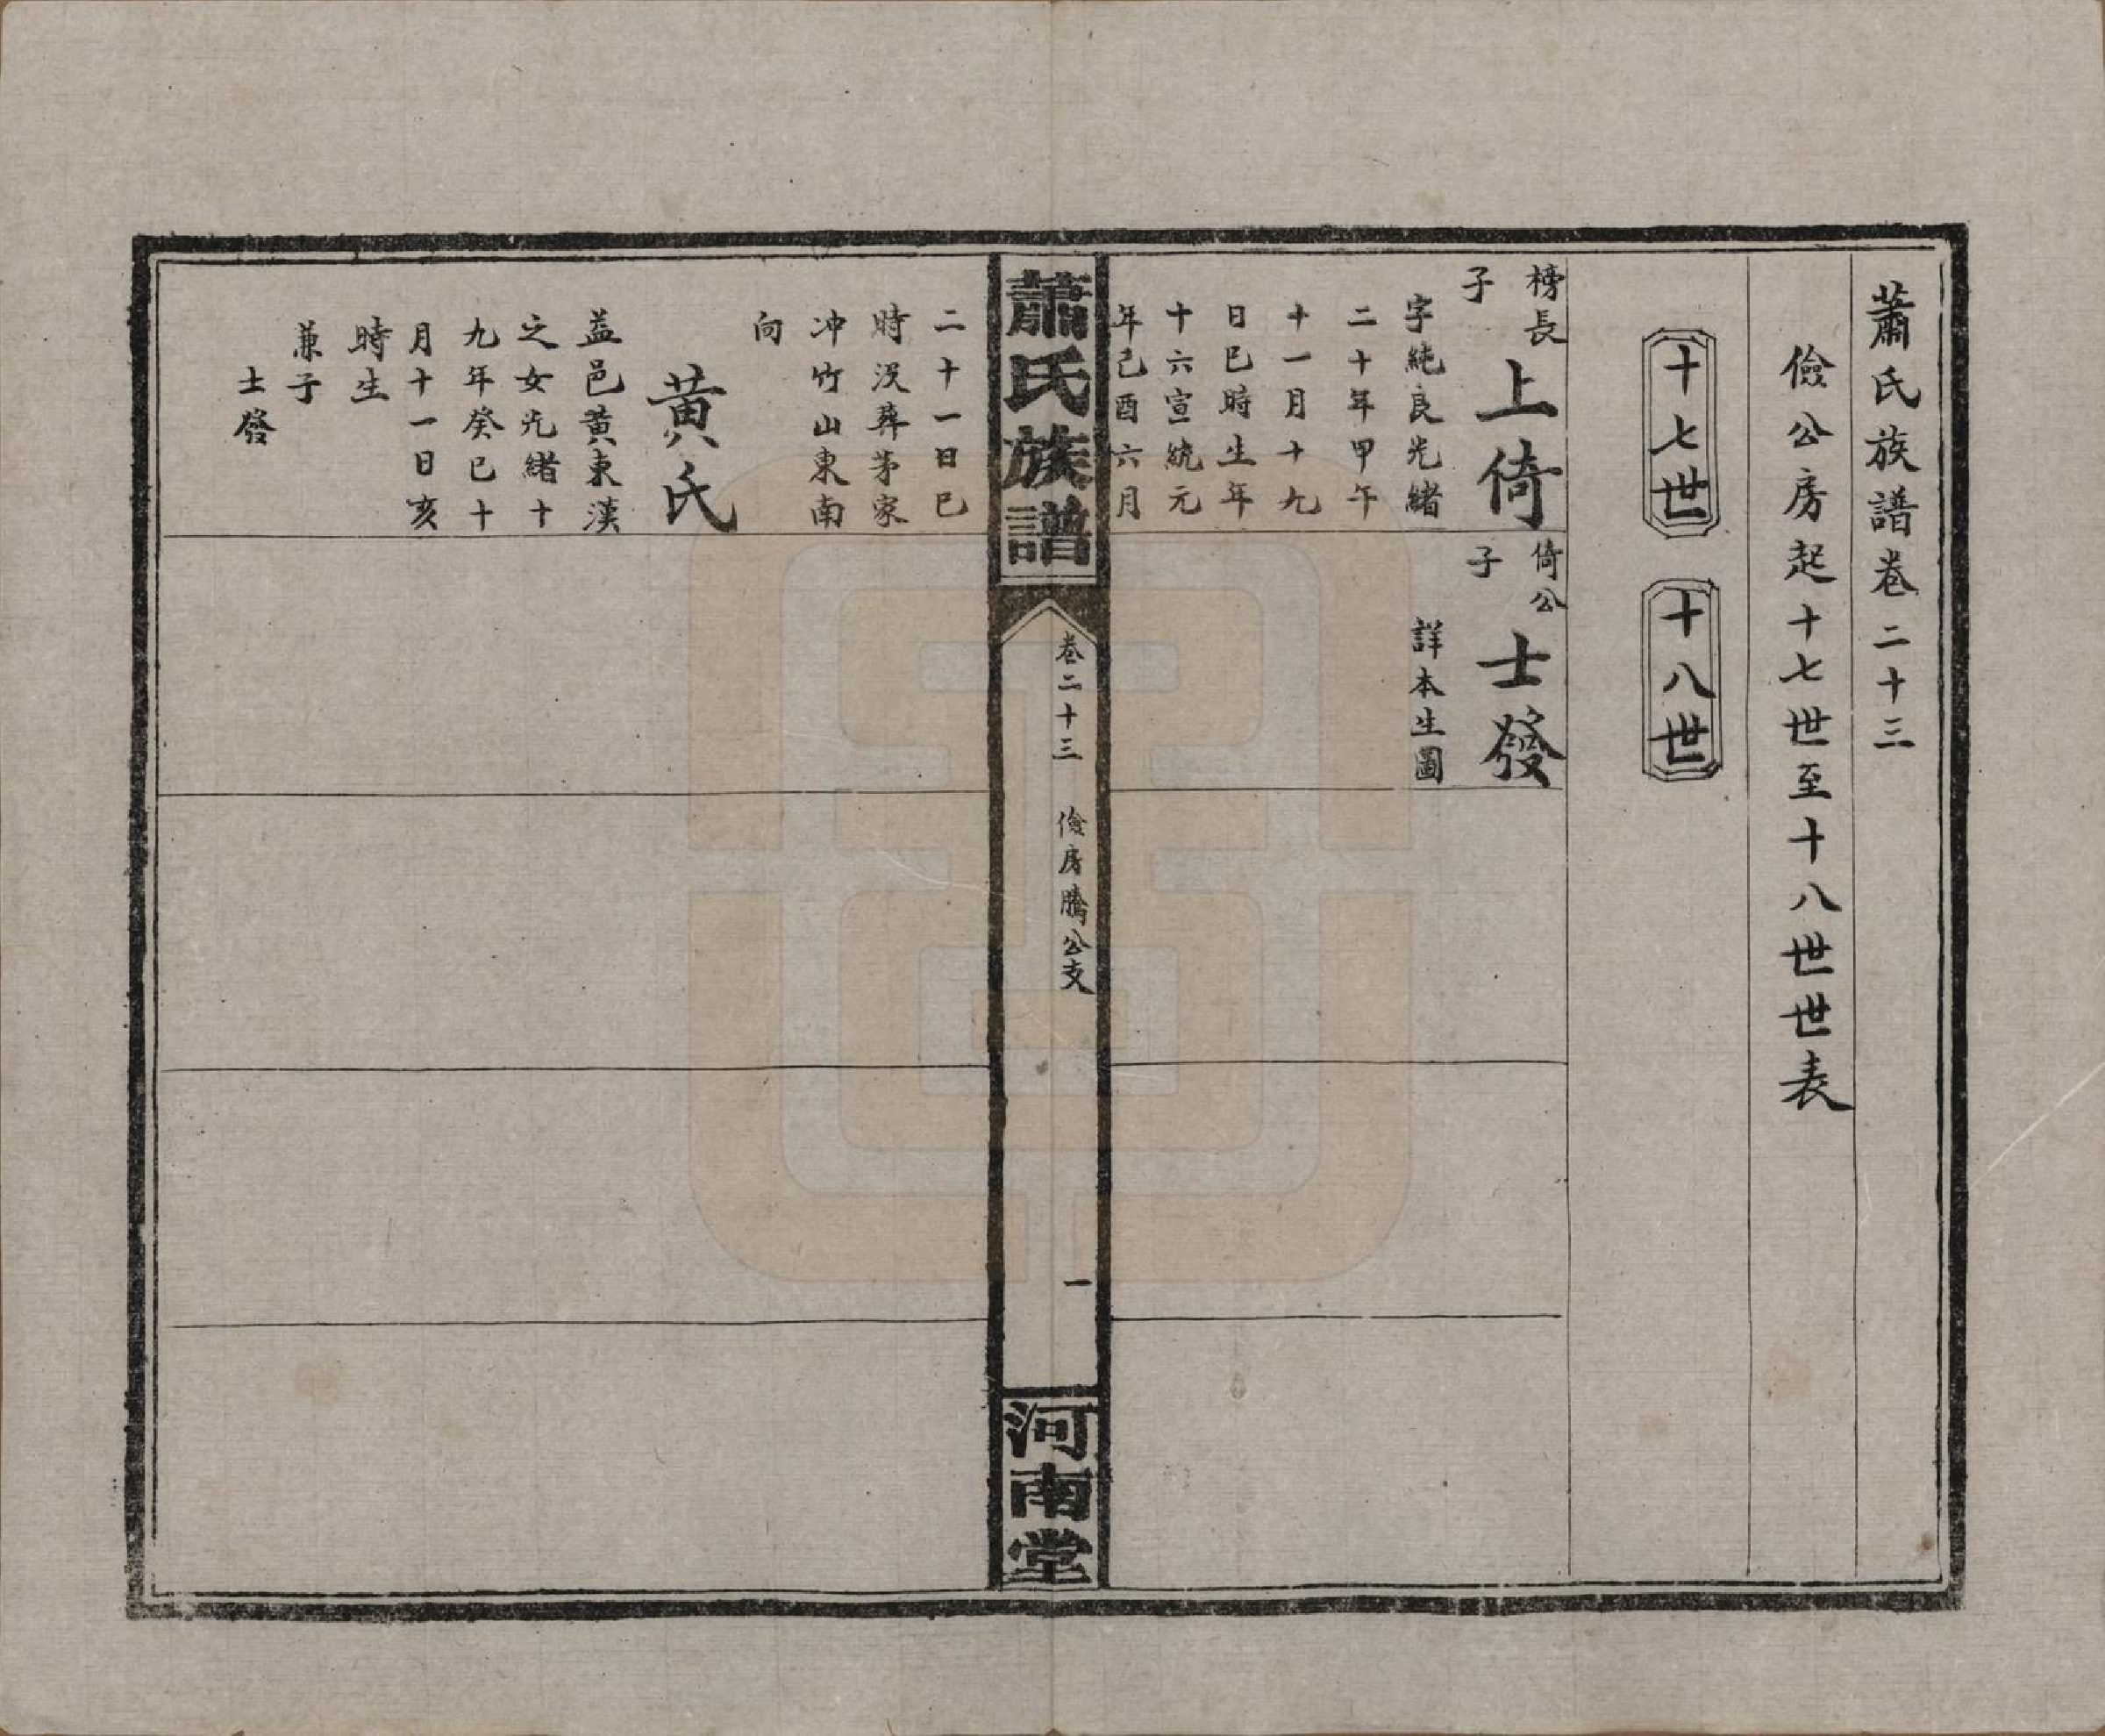 蕭氏族譜卷二十三
儉公房起十七世至十八世世表
十七世
十八世
榜長
子
上倚
字純良光緒
二十年甲午
十一月十九
日巳時生年
十六宣統元
年己酉六月
倚公
子
士發
詳本生圖
蕭氏族譜
卷二十三 儉房騰公支
一
河南堂
二十一日巳
時没葬茅家
冲竹山東南
向
黄氏
益邑黄東漢
之女光緒十
九年癸巳十
月十一日亥
時生
兼子
士發